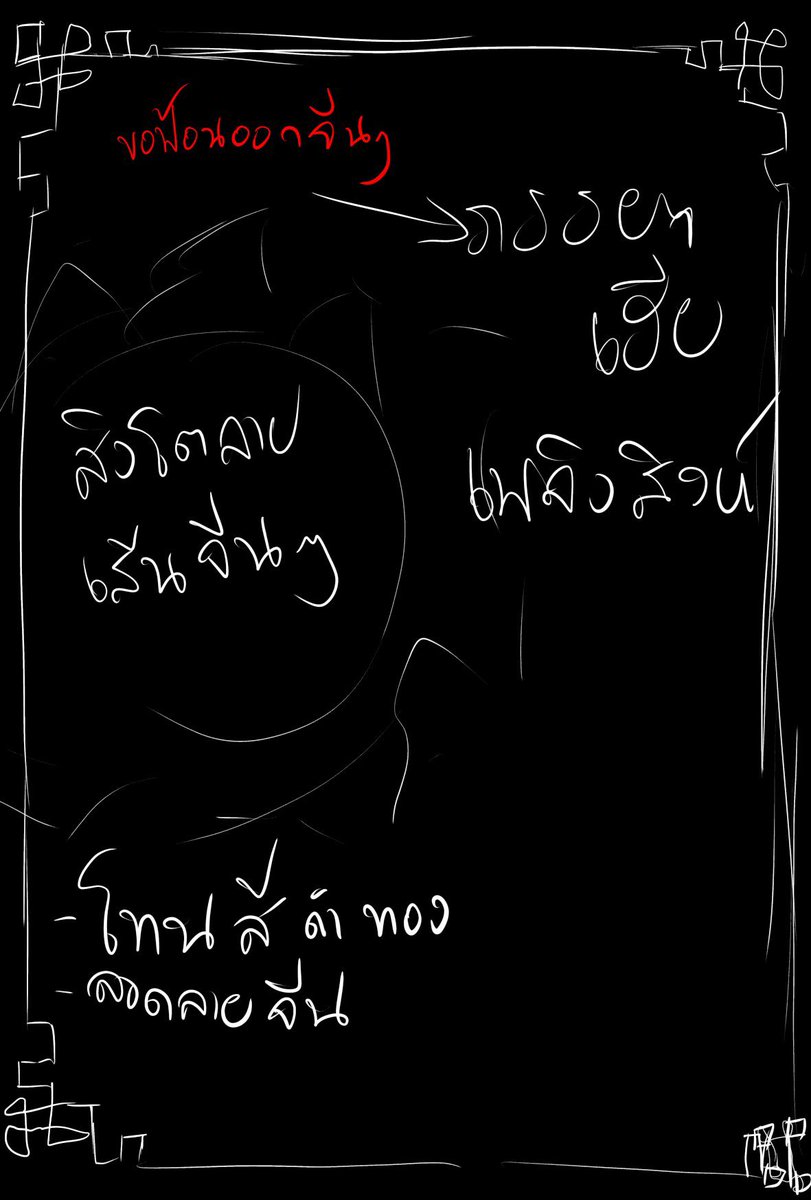 ขอฟ้อนออกจีนๆ
ภรรยา
เฮีย
สิงโตลาย
เส้นจีนๆ
เพลิงสิงห์
- โทนสีดำทอง
- ลวดลายจีน